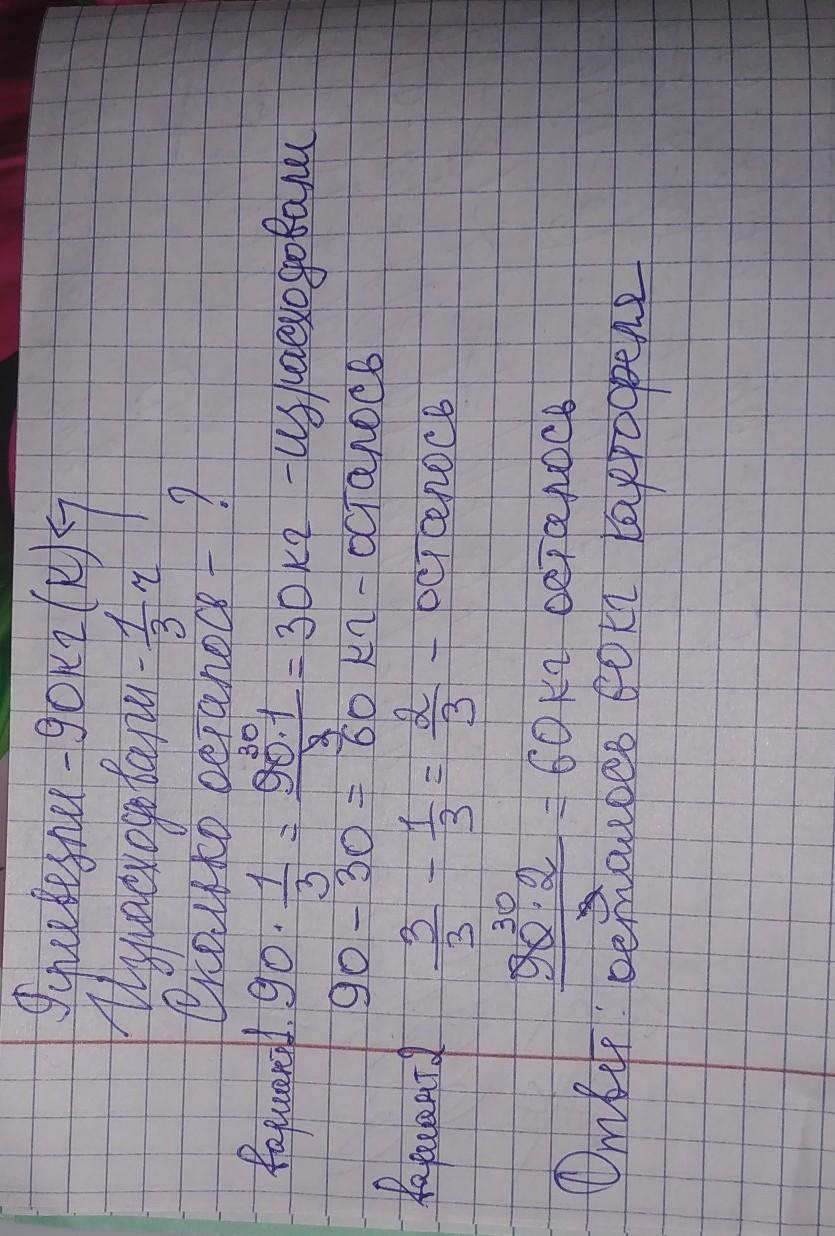 Привезли - 90 кг (к)
Израсходвали - 1/3 ч
Сколько осталось - ?
вариант1. 90 · 1/3 = 90 · 1 / 3 = 30 кг - израсходовали
30
90 - 30 = 60 кг - осталось
вариант2 3/3 - 1/3 = 2/3 - осталось
30
90 · 2 / 3 = 60 кг осталось
Ответ: осталось 60 кг картофеля